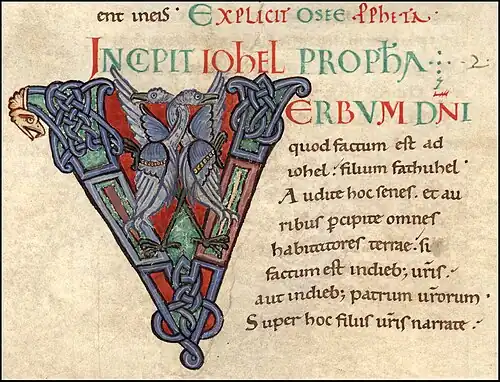 ent ineis · EXPLICIT OSEE PPHETA ·
INCIPIT IOHEL PROPHA · 2 ·
VERBVM DNI
quod factum est ad
iohel : filium fathuhel ·
Audite hoc senes · et au
ribus pcipite omnes
habitatores terrae · si
factum est indieb; uris ·
aut indieb; patrum urorum ·
Super hoc filiis uris narrate ·